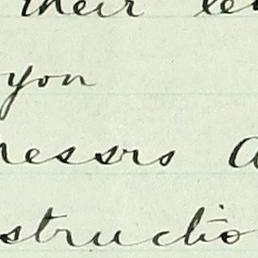 their le
yon
nessrs a
structio